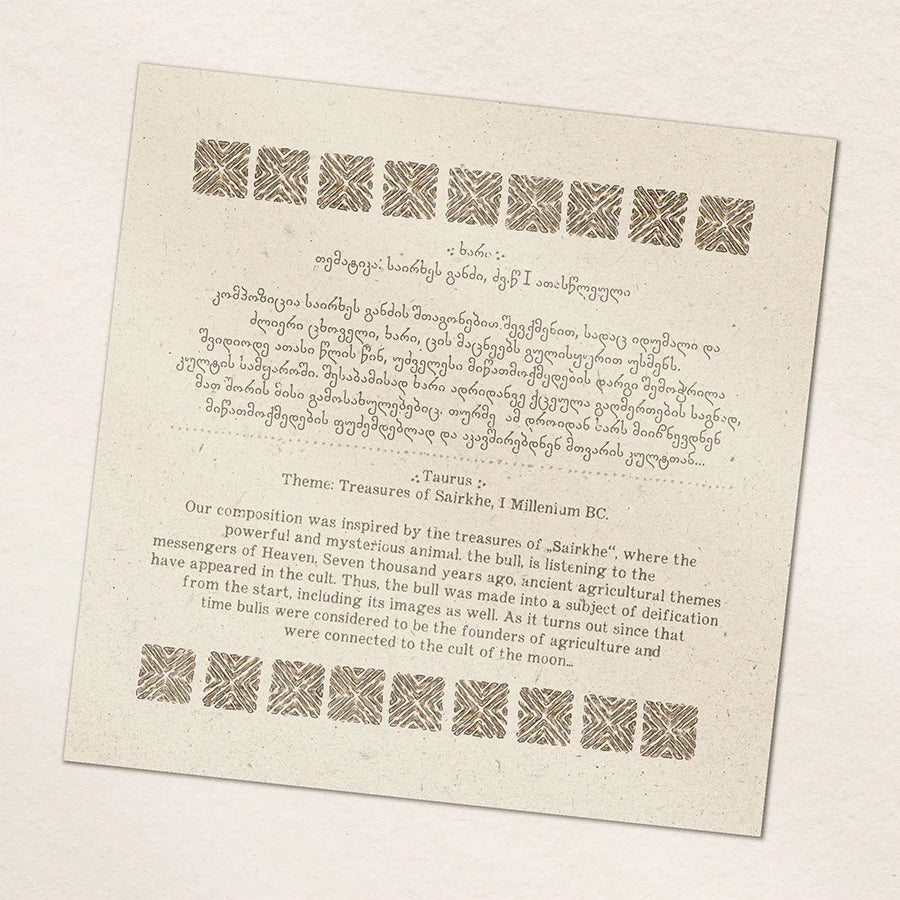 .: ხარი :.
თემატიკა: საირხეს განძი, ძვ.წ I ათასწლეული
კომპოზიცია საირხეს განძის შთაგონებით შევქმენით, სადაც იდუმალი და
ძლიერი ცხოველი, ხარი, ცის მაცნეებს გულისყურით უსმენს.
შვიდიოდე ათასი წლის წინ, უძველესი მიწათმოქმედების დარგი შემოჭრილა
კულტის სამყაროში. შესაბამისად ხარი ადრიდანვე ქცეულა გაღმერთების საგნად,
მათ შორის მისი გამოსახულებებიც. თურმე ამ დროიდან ხარს მიიჩნევდნენ
მიწათმოქმედების ფუძემდებლად და აკავშირებდნენ მთვარის კულტთან...
.: Taurus :.
Theme: Treasures of Sairkhe, I Millenium BC.
Our composition was inspired by the treasures of „Sairkhe“, where the
powerful and mysterious animal, the bull, is listening to the
messengers of Heaven. Seven thousand years ago, ancient agricultural themes
have appeared in the cult. Thus, the bull was made into a subject of deification
from the start, including its images as well. As it turns out since that
time bulls were considered to be the founders of agriculture and
were connected to the cult of the moon...